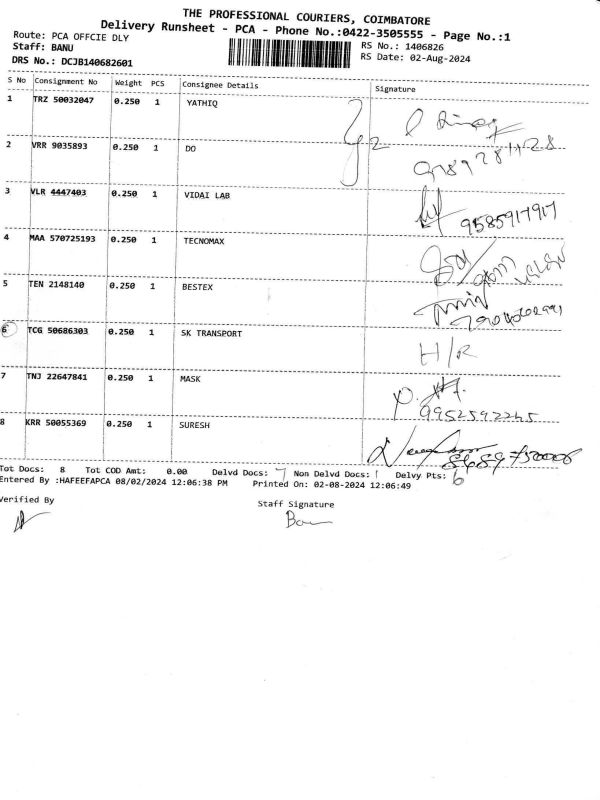 THE PROFESSIONAL COURIERS, COIMBATORE
Delivery Runsheet - PCA - Phone No.:0422-3505555 - Page No.:1
Route: PCA OFFCIE DLY RS No.: 1406826
Staff: BANU RS Date: 02-Aug-2024
DRS No.: DCJB140682601
S No Consignment No Weight PCS Consignee Details Signature
1 TRZ 50032047 0.250 1 YATHIQ
2 VRR 9035893 0.250 1 DO
3 VLR 4447403 0.250 1 VIDAI LAB
9585917917
4 MAA 570725193 0.250 1 TECNOMAX
5 TEN 2148140 0.250 1 BESTEX
6 TCG 50686303 0.250 1 SK TRANSPORT
H/R
7 TNJ 22647841 0.250 1 MASK
9952592245
8 KRR 50055369 0.250 1 SURESH
Tot Docs: 8 Tot COD Amt: 0.00 Delvd Docs: 7 Non Delvd Docs: 1 Delvy Pts: 6
Entered By :HAFEEFAPCA 08/02/2024 12:06:38 PM Printed On: 02-08-2024 12:06:49
Verified By Staff Signature